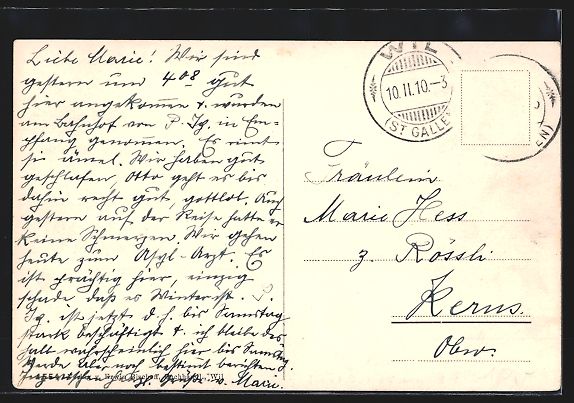 Liebe Marie! Wir sind
gestern um 4 08 gut
hier angekommen u. wurden
am Bahnhof von P. Ig. in Em-
pfang genommen. Es
sie Wir haben gut
geschlafen, Otto geht es bis
dahin recht gut, gottlob. Auch
gestern auf der Reise hatte er
keine Schmerzen. Wir gehen
heute zum Arzt. Es
ist prächtig hier, einzig
schade, daß es Winter ist. P.
Ig. ist jetzt d. h. bis Samstag
stark beschäftigt u. ich bleibe des-
halb wahrscheinlich hier bis Samstag
Werde aber noch bestimmt berichten.
Inzwischen v. Marie.
WIL
10.II.10.-3
(ST GALLEN)
Fräulein
Marie Hess
z. Rössli
Kerns.
Obw.